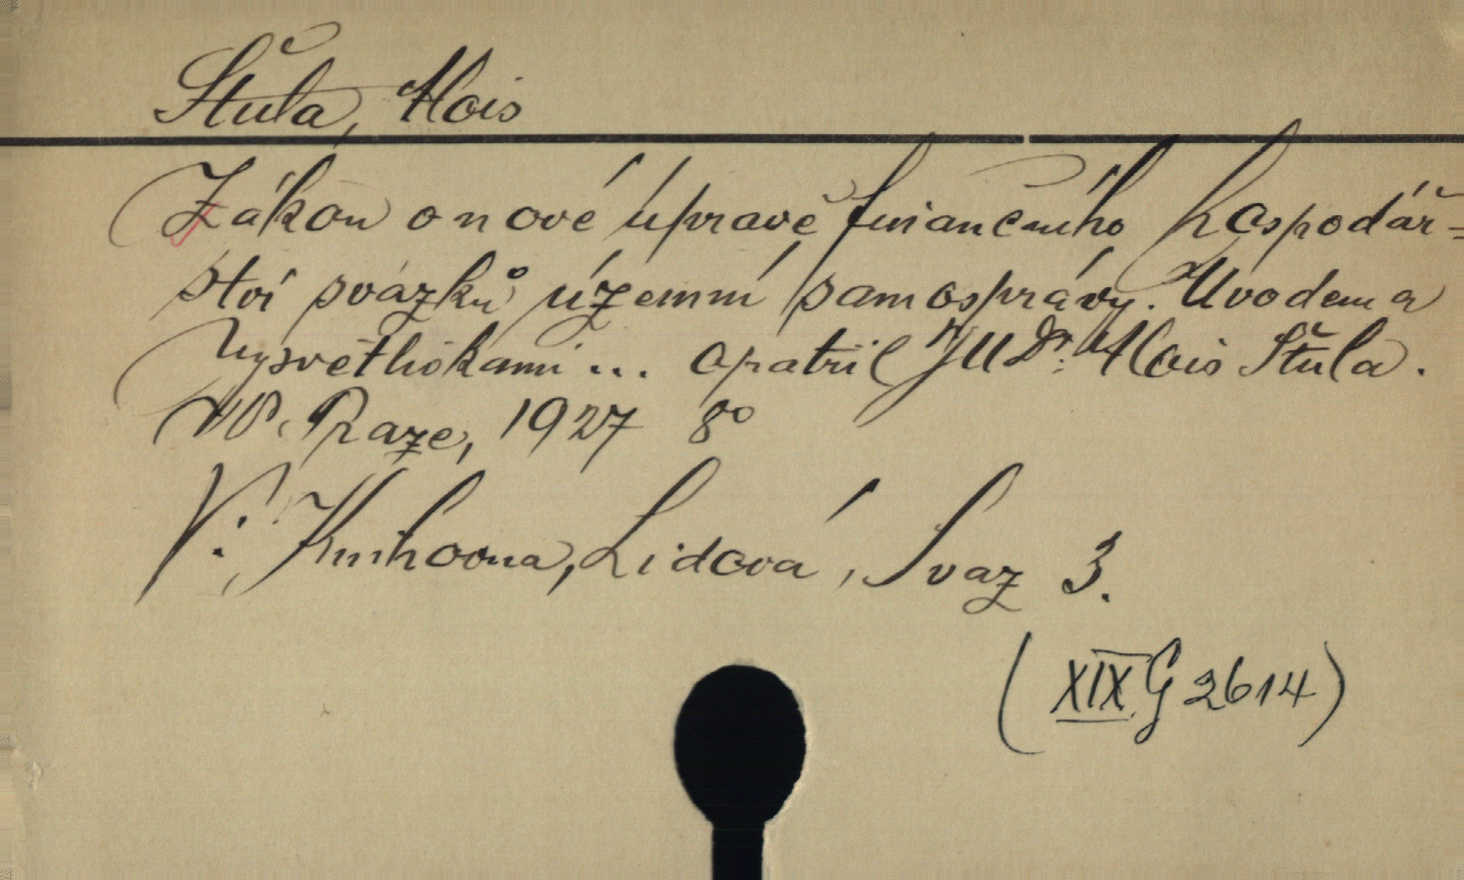 Štula, Alois
Zákon o nové úpravě finančního hospodář-
ství svazků územní samosprávy. Úvodem a
vysvětlivkami ... opatřil JUDr. Alois Štula.
V Praze, 1927 8°
V: Knihovna, Lidová, Svaz 3.
(XIX G 2614)